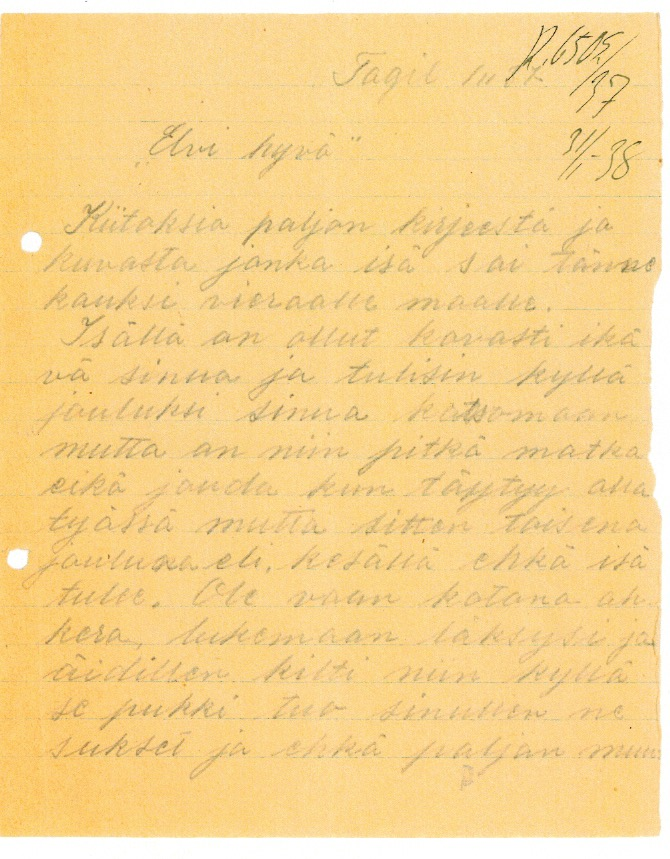 Tagil
R.6505/
/37
31/1-38
"Elvi hyvä"
Kiitoksia paljon kirjeestä ja
kuvasta jonka isä sai tänne
kauksi vieraalle maalle.
Isällä on ollut kovasti ikä
vä sinua ja tulisin kyllä
jouluksi sinua katsomaan
mutta on niin pitkä matka
eikä jouda kun täytyy olla
työssä mutta sitten toisena
jouluna eli. kesällä ehkä isä
tulee. Ole vaan kotona ah
kera, lukemaan läksysi ja
äidillen kilti niin kyllä
se pukki tuo sinullen ne
sukset ja ehkä paljon muu